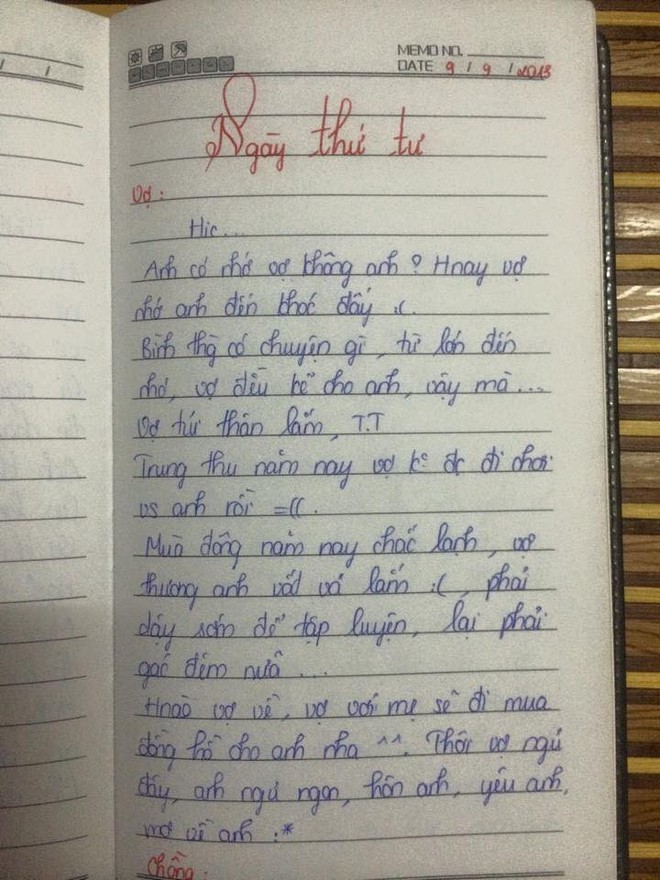 MEMO NO.
DATE 9 / 9 / 2013
Ngày thứ tư
Vợ :
Hic...
Anh có nhớ vợ không anh ? Hnay vợ
nhớ anh đến khóc đấy :(.
Bình thg có chuyện gì, từ lớn đến
nhỏ, vợ đều kể cho anh, vậy mà...
Vợ tủi thân lắm, T.T
Trung thu năm nay vợ k đc đi chơi
vs anh rồi =((.
Mùa đông năm nay chắc lạnh, vợ
thương anh vất vả lắm :(, phải
dậy sớm để tập luyện, lại phải
gác đêm nữa ...
Hnào vợ về, vợ với mẹ sẽ đi mua
đồng hồ cho anh nha ^^. Thôi vợ ngủ
đây, anh ngủ ngon, hôn anh, yêu anh,
mơ về anh :*
Chồng :